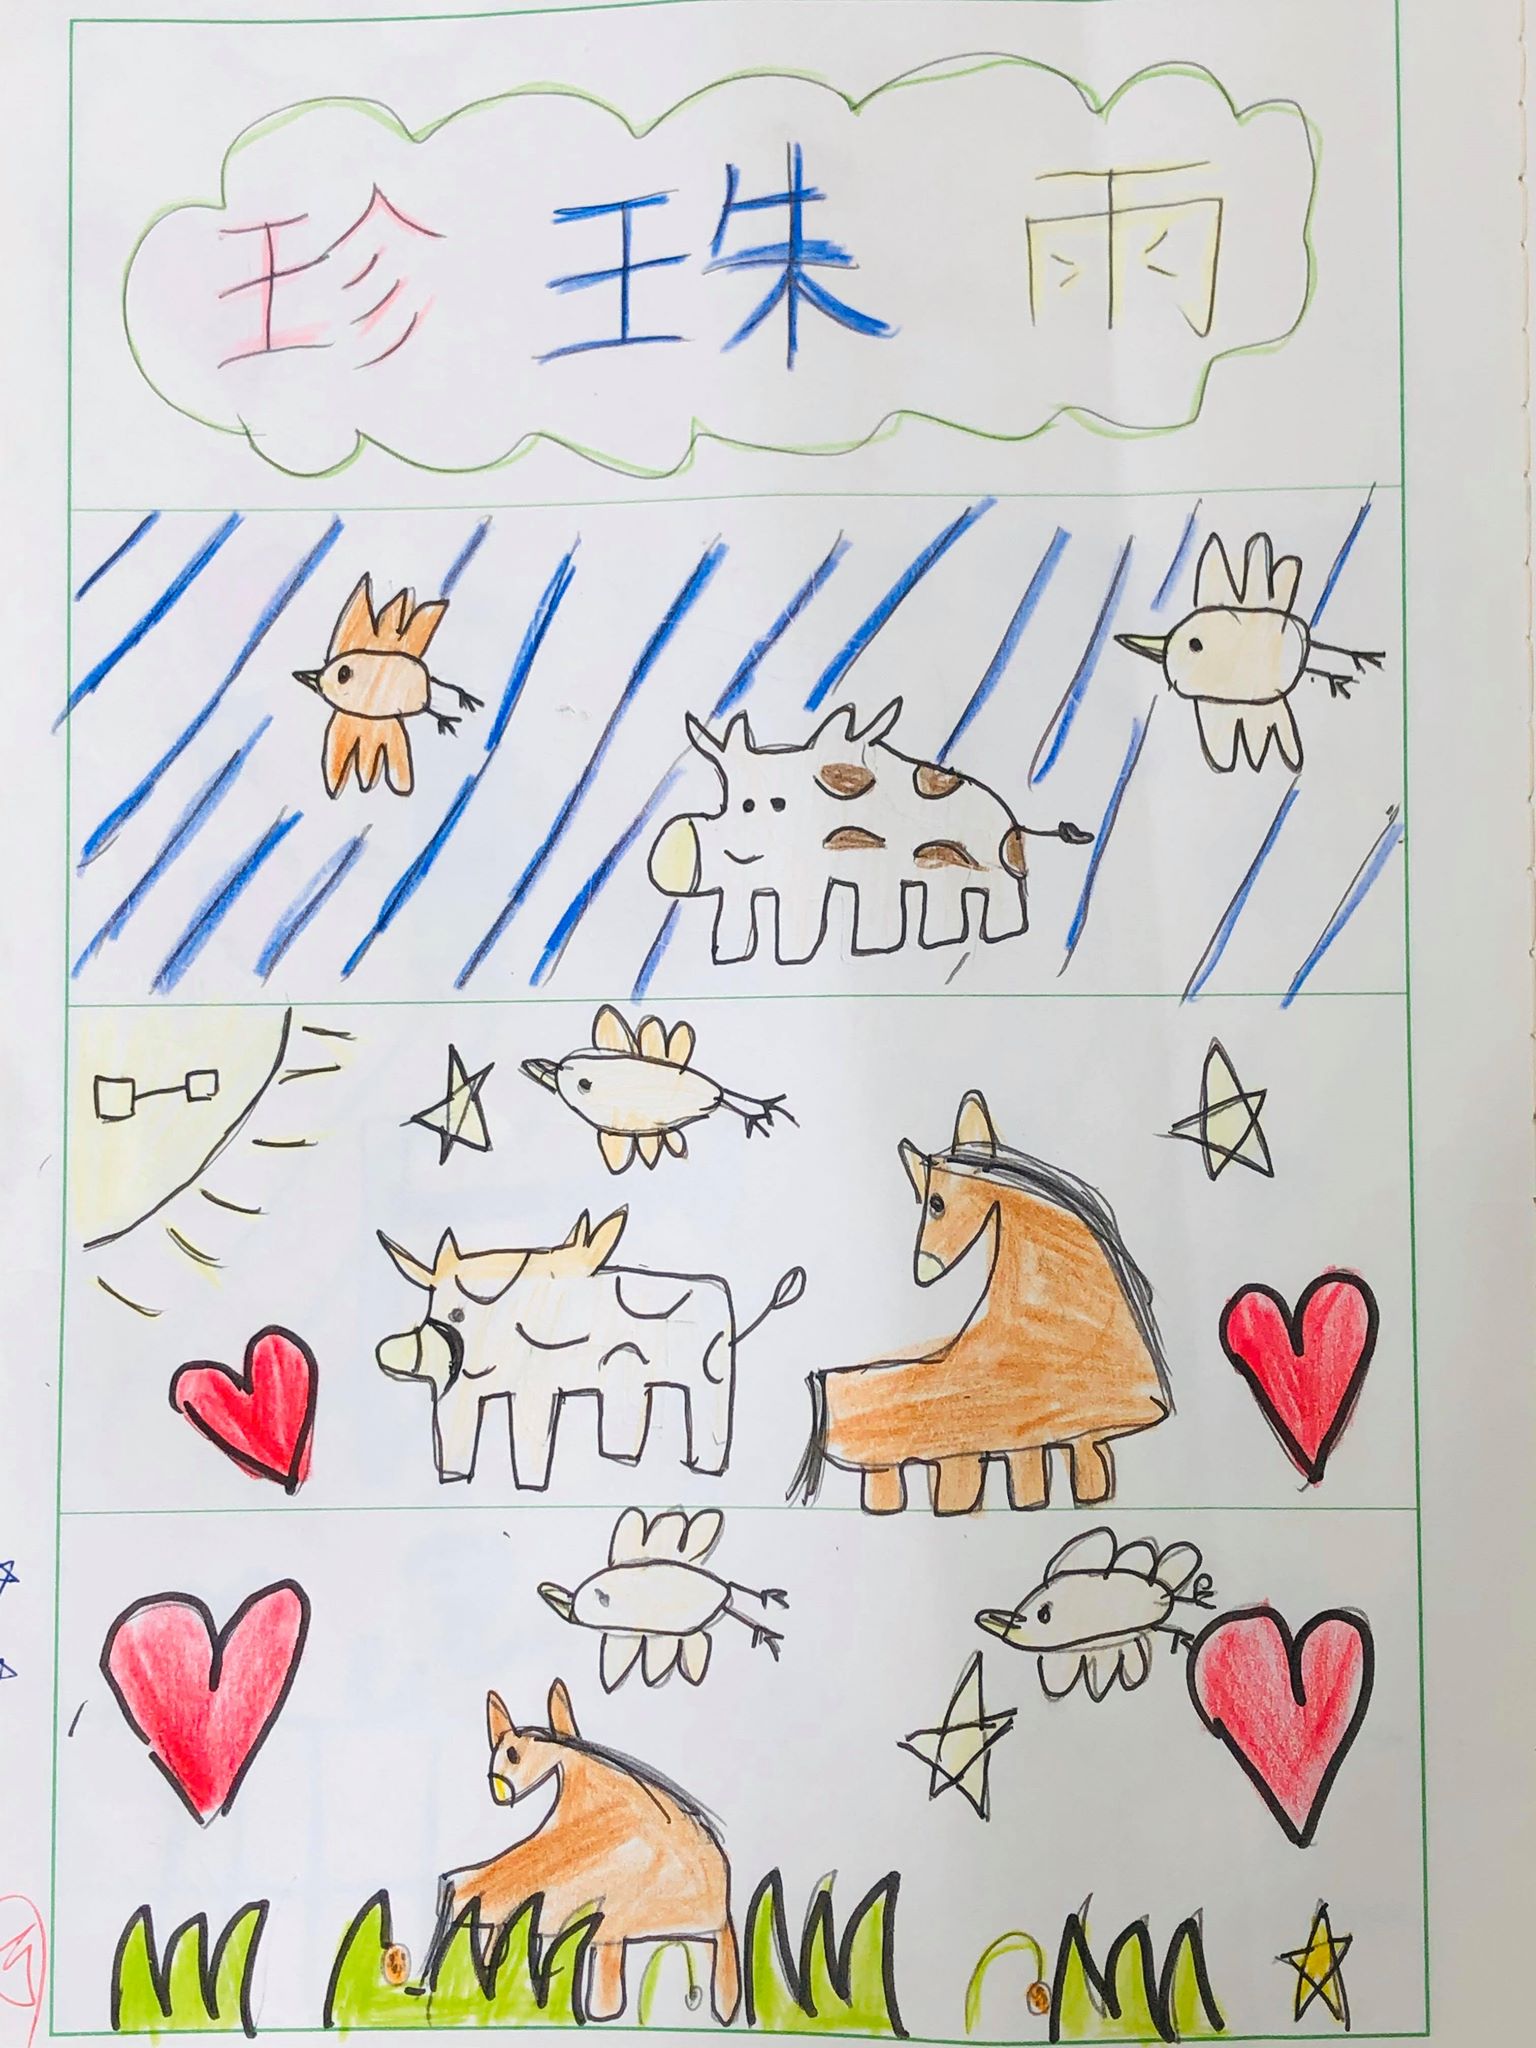 珍珠雨